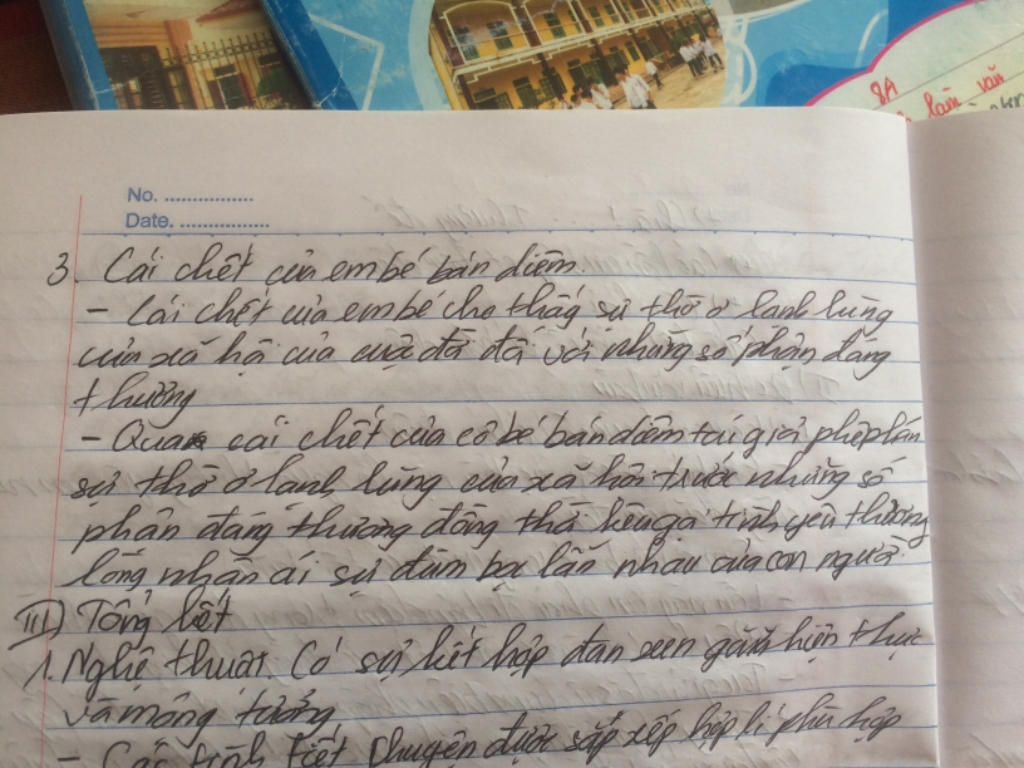 8A
làm văn
No.
Date.
3. Cái chết của em bé bán diêm.
- Cái chết của em bé cho thấy sự thờ ơ lạnh lùng
của xã hội của cuộc đời đối với những số phận đáng
thương
- Qua cái chết của cô bé bán diêm tác giả phê phán
sự thờ ơ lạnh lùng của xã hội trước những số
phận đáng thương đồng thời kêu gọi tình yêu thương
lòng nhân ái sự đùm bọc lẫn nhau của con người.
III) Tổng kết
1. Nghệ thuật. Có sự kết hợp đan xen giữa hiện thực
và mộng tưởng
- Các tình tiết chuyện được sắp xếp hợp lí phù hợp